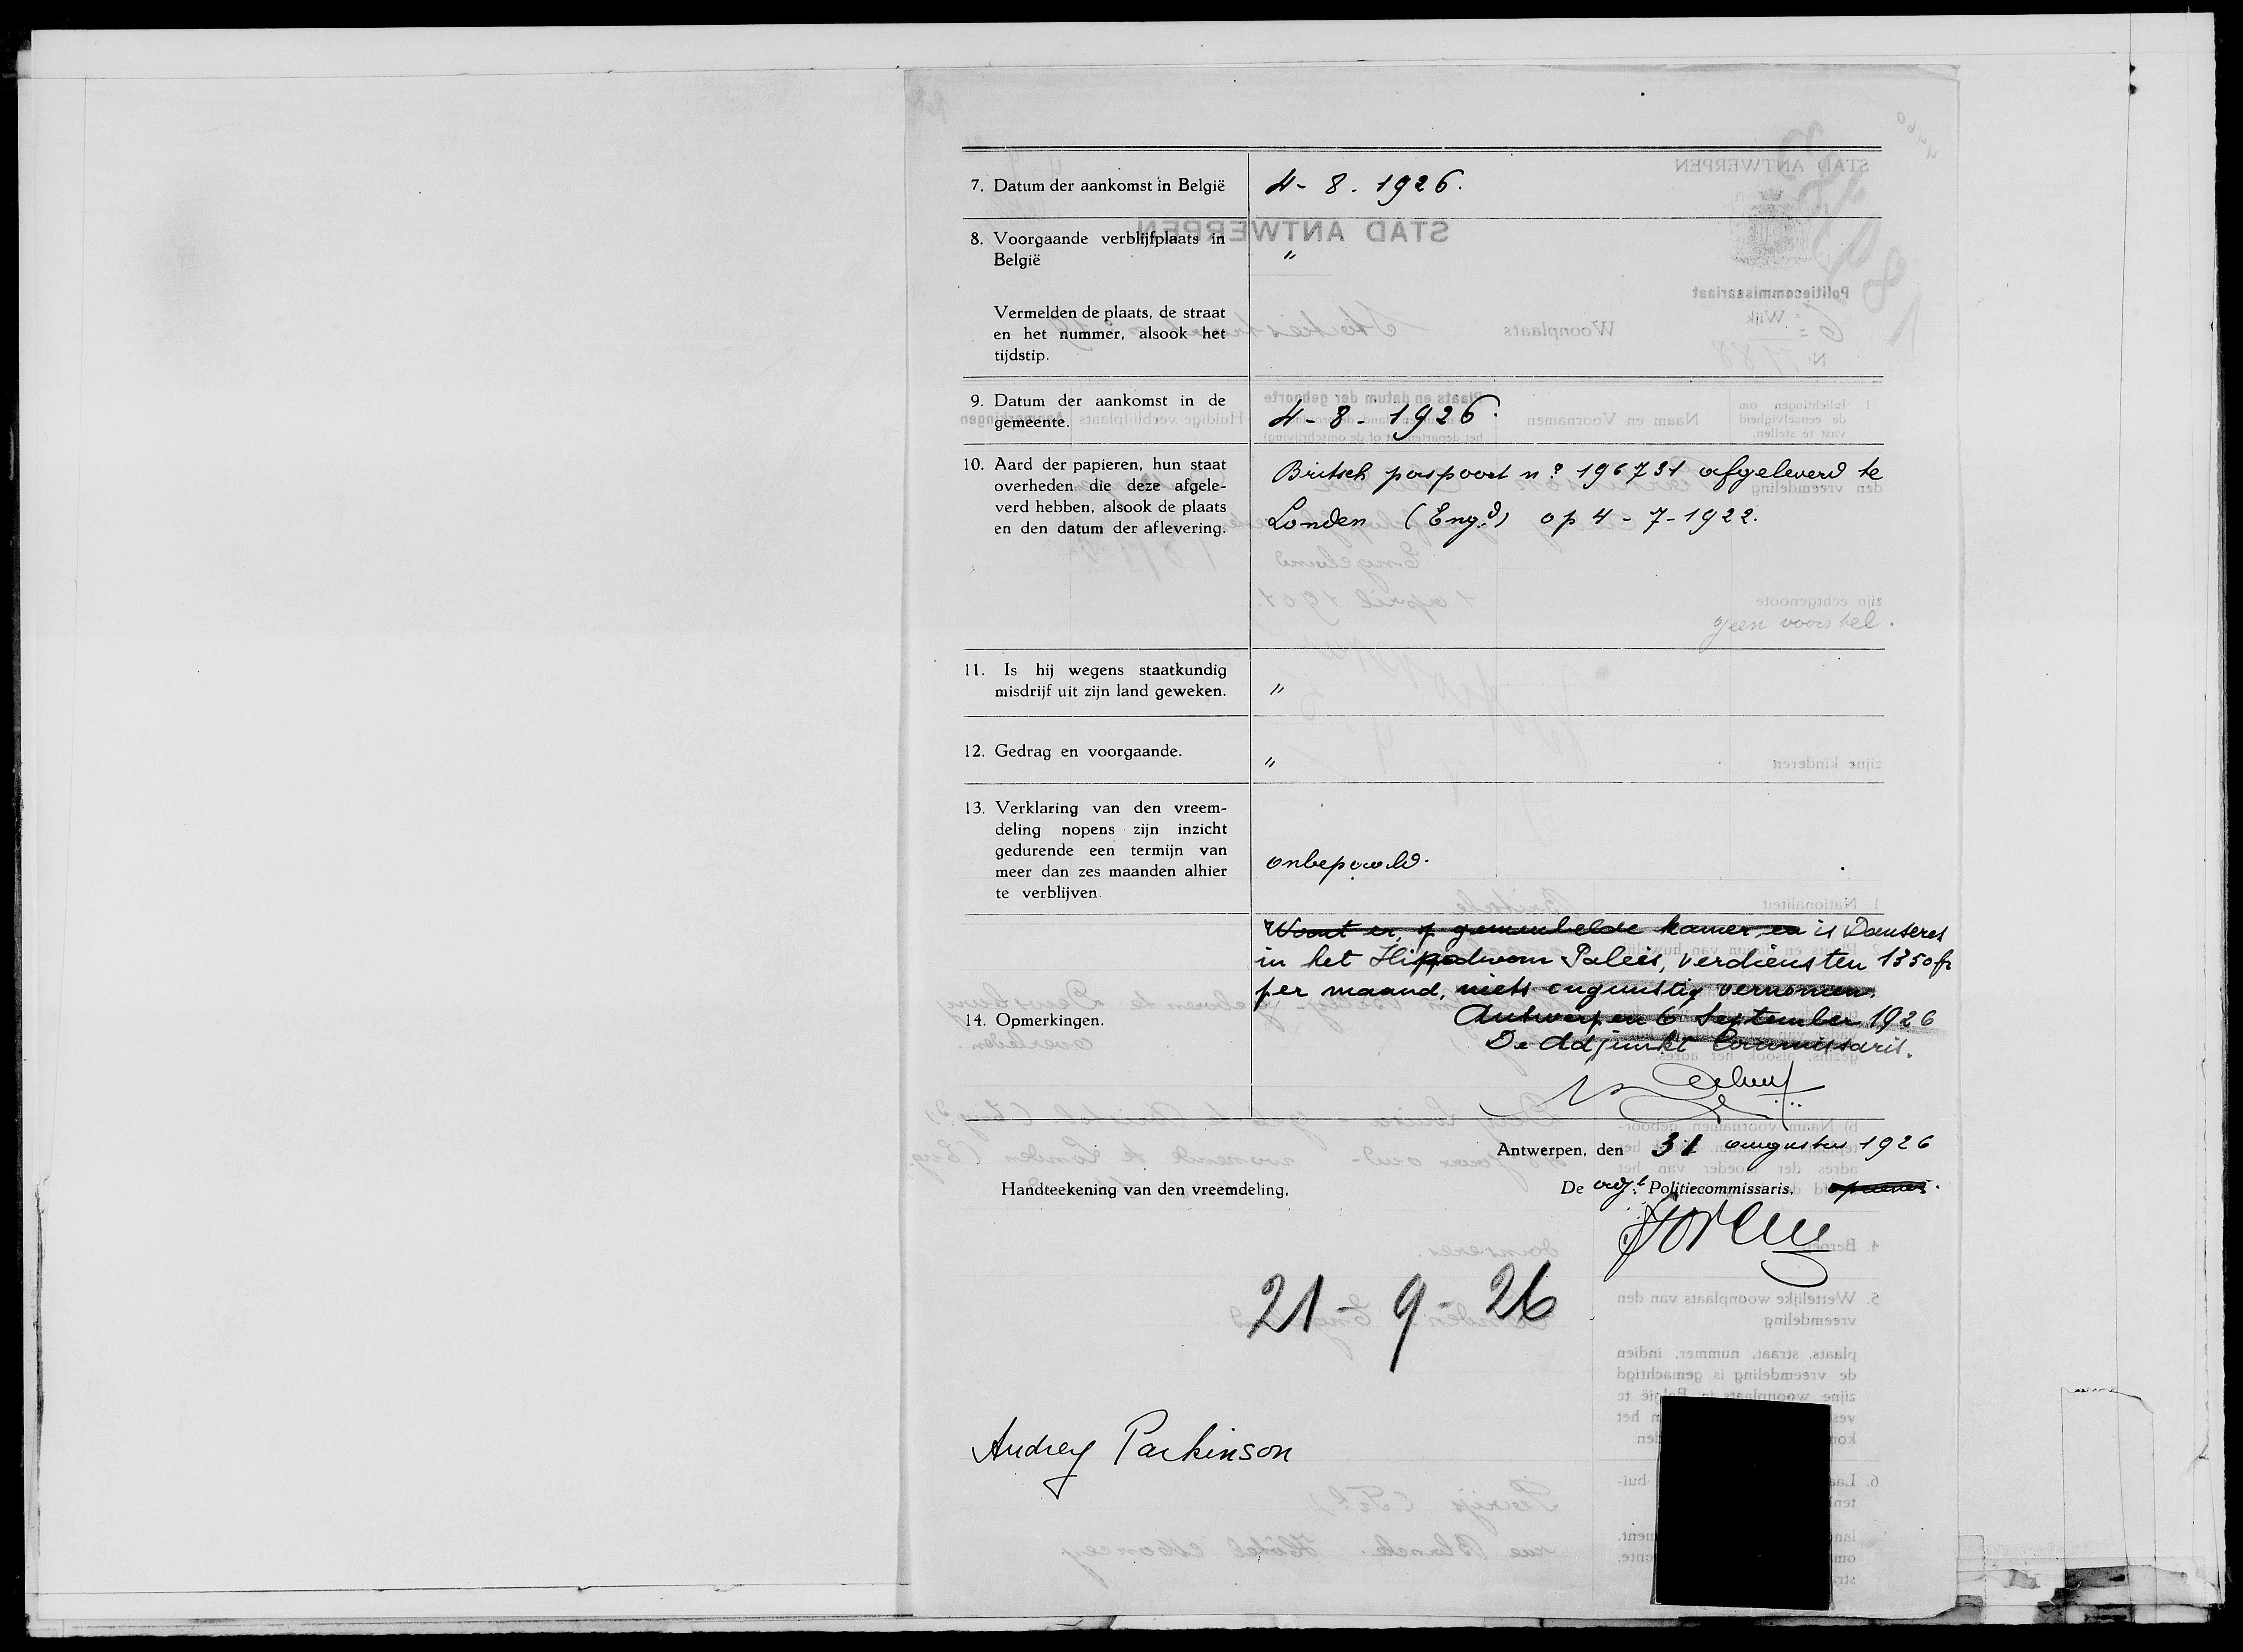 7. Datum der aankomst in België
4 - 8 - 1926.
8. Voorgaande verblijfplaats in
België
"
Vermelden de plaats, de straat
en het nummer, alsook het
tijdstip.
9. Datum der aankomst in de
gemeente.
4 - 8 - 1926.
10. Aard der papieren, hun staat
overheden die deze afgele-
verd hebben, alsook de plaats
en den datum der aflevering.
Britsch paspoort n° 196731 afgeleverd te
Londen (Eng.d) op 4 - 7 - 1922.
geen voorstel.
11. Is hij wegens staatkundig
misdrijf uit zijn land geweken.
"
12. Gedrag en voorgaande.
"
13. Verklaring van den vreem-
deling nopens zijn inzicht
gedurende een termijn van
meer dan zes maanden alhier
te verblijven.
onbepaald.
14. Opmerkingen.
Woont er op gemeubelde kamer en is Danseres
in het Hippodroom Paleis, verdiensten 1350 fr
per maand, niets ongunstig vernomen.
Antwerpen 6 September 1926
De Adjunkt Commissaris.
Antwerpen, den 31 augustus 1926
Handteekening van den vreemdeling,
De adj.t Politiecommissaris,
21 - 9 - 26
Audrey Parkinson
STAD ANTWERPEN
STAD ANTWERPEN
Politiecommissariaat
Wijk
Woonplaats